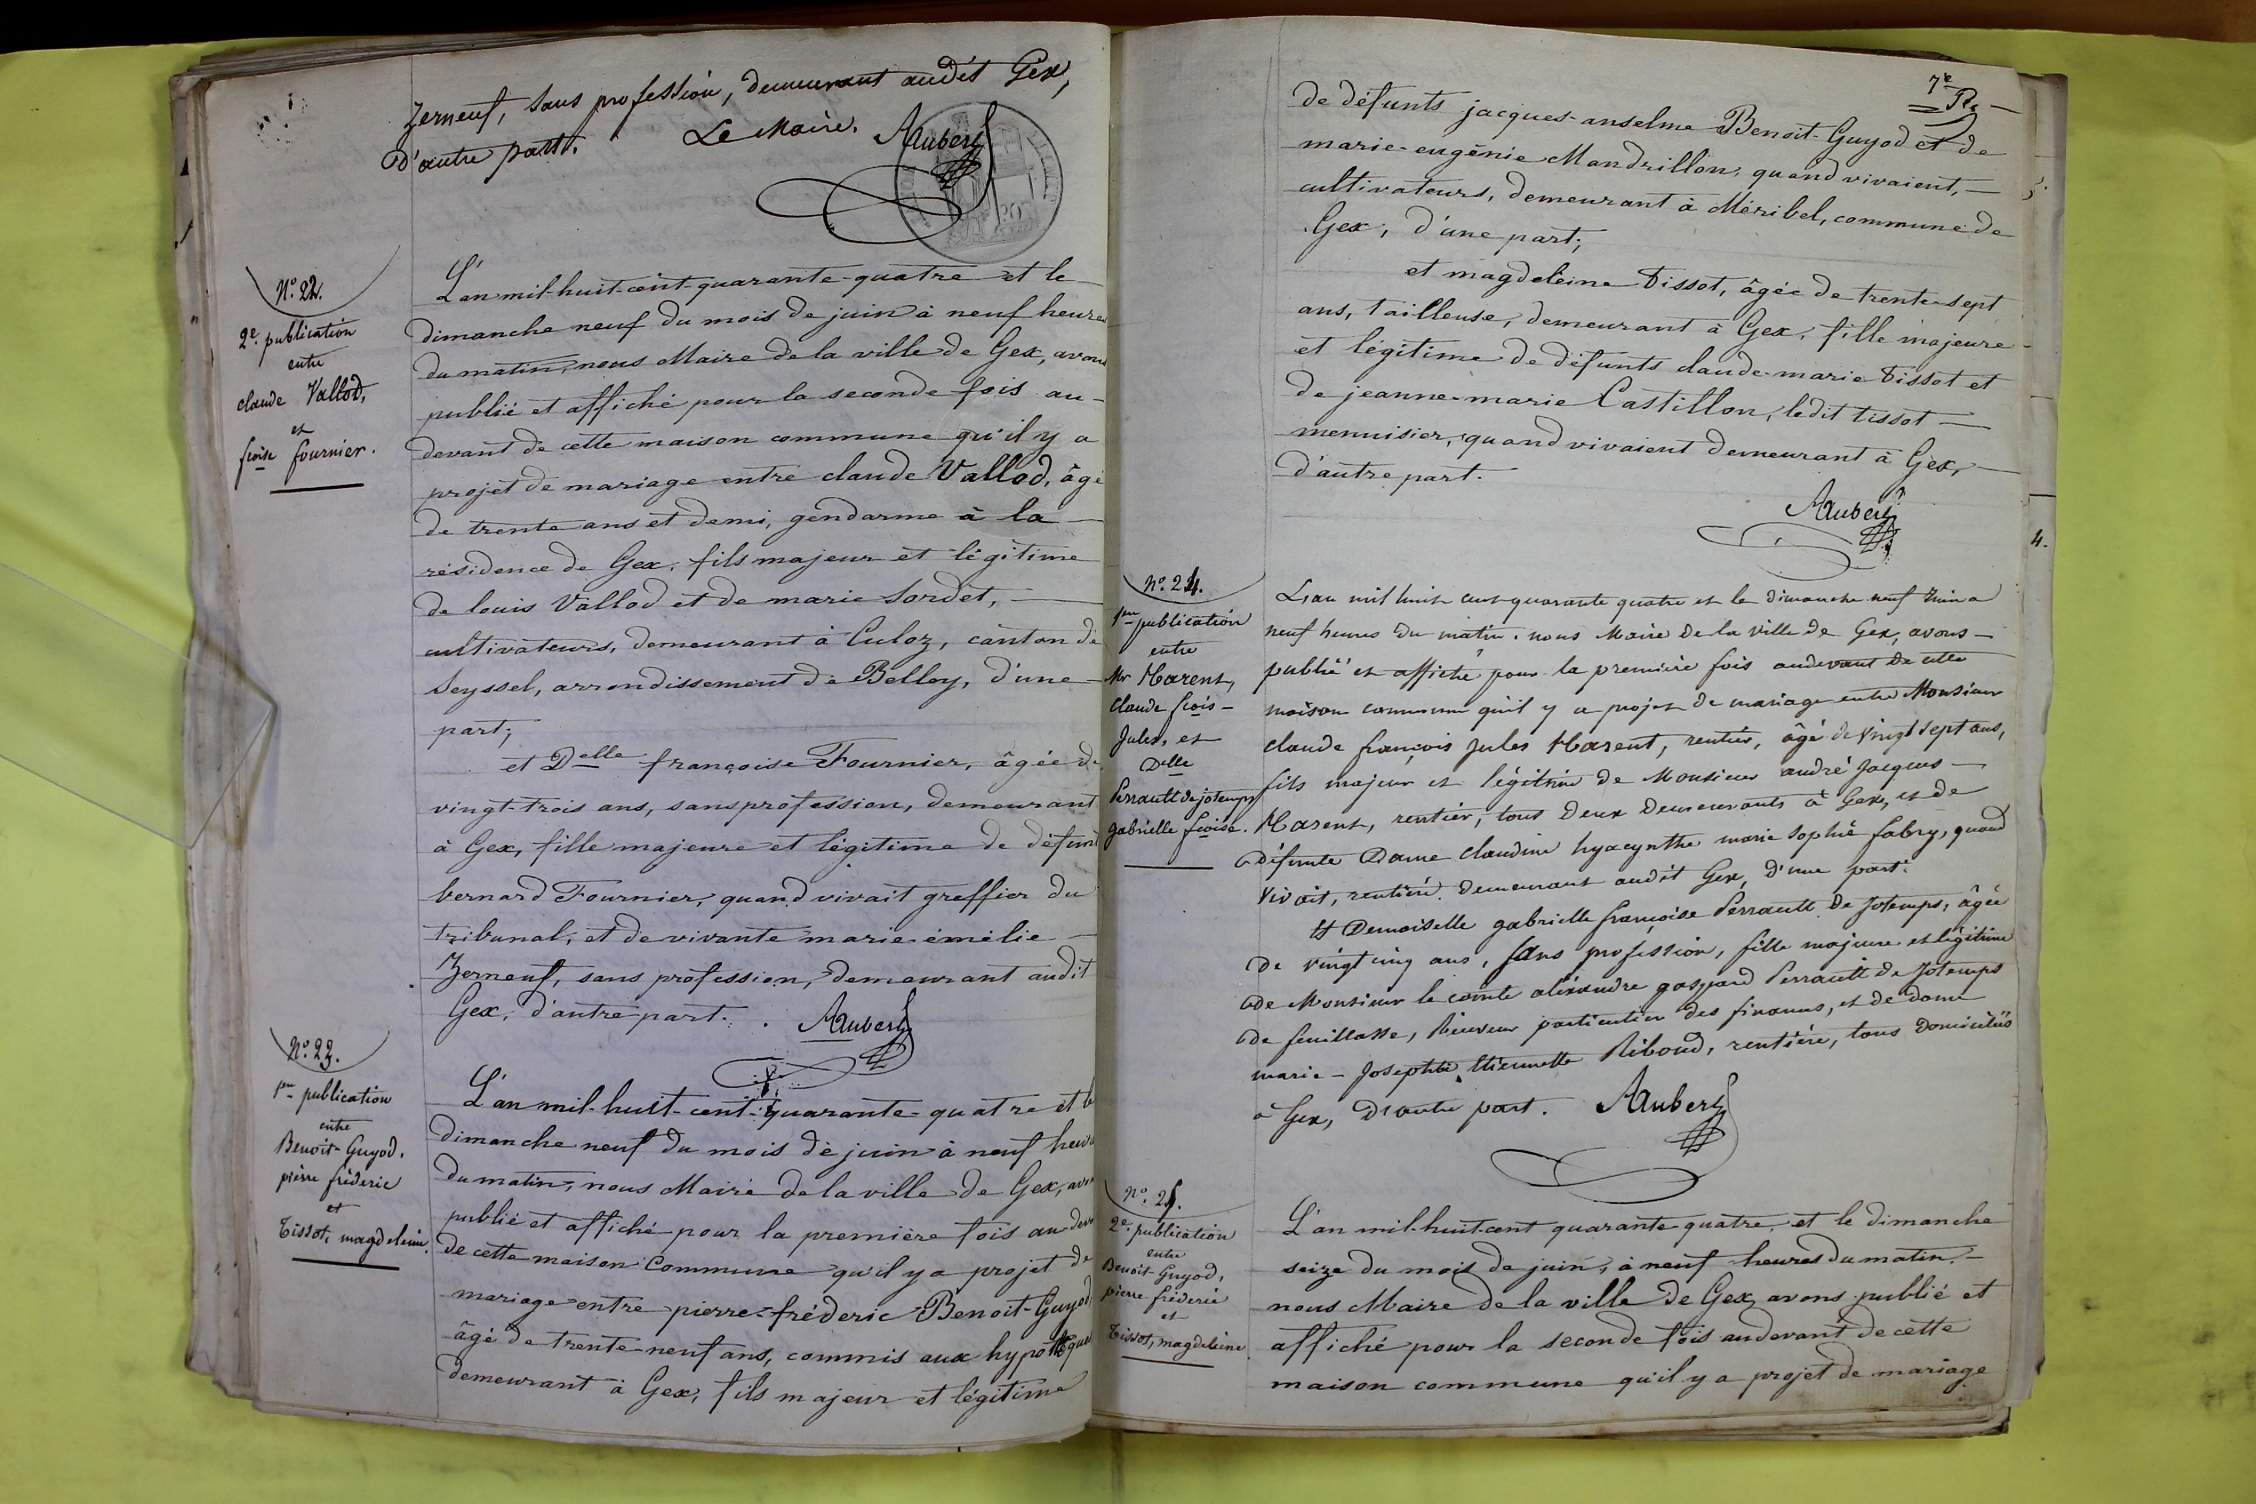 Zerneuf, sans profession, demeurant audit Gex,
d'autre part. Le Maire. AAubert
N.º 22.
2.e publication
entre
claude Vallod,
et
fçoise fournier.
L'an mil-huit-cent-quarante-quatre et le
dimanche neuf du mois de juin à neuf heures
du matin, nous Maire de la ville de Gex, avons
publié et affiché pour la seconde fois au-
devant de cette maison commune qu'il y a
projet de mariage entre claude Vallod, âgé
de trente ans et demi, gendarme à la
résidence de Gex, fils majeur et légitime
de louis Vallod et de marie Sordet,
cultivateurs, demeurant à Culoz, canton de
Seyssel, arrondissement de Belley, d'une
part;
et Delle françoise Fournier, âgée de
vingt-trois ans, sans profession, demeurant
à Gex, fille majeure et légitime de défunt
bernard Fournier, quand vivait greffier du
tribunal, et de vivante marie-émélie
Zerneuf, sans profession, demeurant audit
Gex, d'autre part. AAubert
N.º 23.
1re publication
entre
Benoit-Guyod,
pierre fréderic
et
Tissot, magdeleine.
L'an mil-huit-cent-quarante-quatre et le
dimanche neuf du mois de juin à neuf heures
du matin, nous Maire de la ville de Gex, avons
publié et affiché pour la première fois au devant
de cette maison commune qu'il y a projet de
mariage entre pierre-fréderic Benoit-Guyod
âgé de trente-neuf ans, commis aux hypothèques
demeurant à Gex, fils majeur et légitime
7e
de défunts jacques-anselme Benoit-Guyod et de
marie-eugénie Mandrillon, quand vivaient,
cultivateurs, demeurant à Méribel, commune de
Gex, d'une part;
et magdeleine Tissot, âgée de trente-sept
ans, tailleuse, demeurant à Gex, fille majeure
et légitime de défunts claude-marie Tissot et
de jeanne-marie Castillon, ledit tissot
menuisier, quand vivaient demeurant à Gex,
d'autre part.
AAubert
4.
N.º 24.
1re publication
entre
Mr Harent,
Claude fçois-
Jules, et
Delle
Perrault de jotemps
gabrielle fçoise.
L'an mil huit cent quarante quatre et le dimanche neuf Juin a
neuf heures du matin. nous Maire de la ville de Gex, avons
publié et affiché pour la première fois audevant de cette
maison commune qu'il y a projet de mariage entre Monsieur
claude françois Jules Harent, rentier, âgé de vingt sept ans,
fils majeur et légitime de Monsieur andré Jacques
Harent, rentier, tous deux demeurants à Gex, et de
défunte Dame Claudine hyacynthe marie Sophie fabry, quand
vivait, rentière demeurant audit Gex, d'une part.
Et Demoiselle gabrielle françoise Perrault de Jotemps, âgée
de vingt cinq ans, sans profession, fille majeure et légitime
de Monsieur le comte aléxandre gaspard Perrault de Jotemps
de feuillasse, Réceveur particulier des finances, et de dame
marie-Josephte Etiennette Riboud, rentière, tous domiciliés
a Gex, D'autre part. AAubert
N.º 25.
2.e publication
entre
Benoit-Guyod,
pierre fréderic
et
Tissot, magdeleine.
L'an mil-huit-cent quarante-quatre, et le dimanche
seize du mois de juin, à neuf heures du matin,
nous Maire de la ville de Gex, avons publié et
affiché pour la seconde fois audevant de cette
maison commune qu'il y a projet de mariage